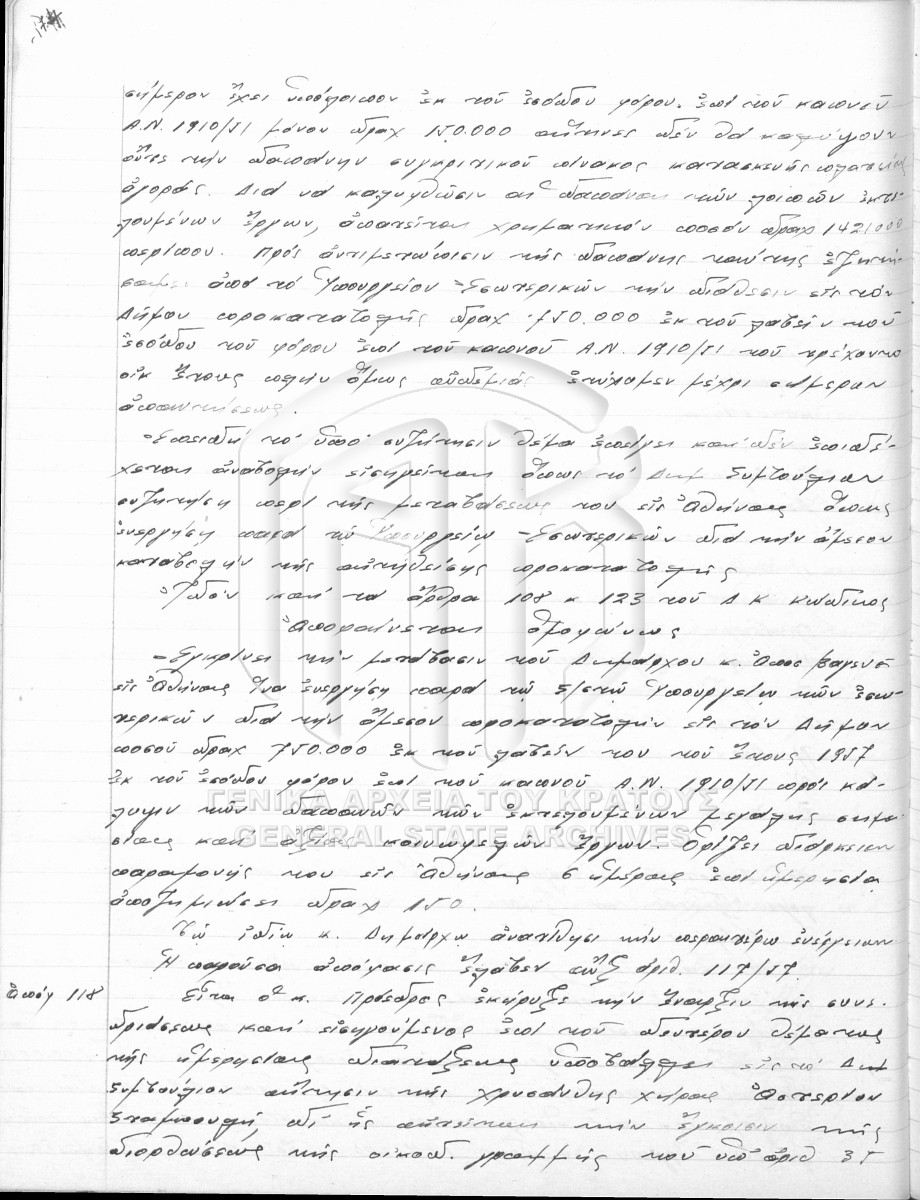 σήμερον ἔχει ὑπόλοιπον ἐκ τοῦ ἐσόδου φόρου ἐπί τοῦ καπνοῦ
Α.Ν. 1910/51 μόνον δραχ 150.000 αἵτινες δέν θά καλύψουν
οὔτε τήν δαπάνην συγκριτικοῦ πίνακος κατασκευῆς πλατείας
ἀγορᾶς. Διά νά καλυφθῶσιν αἱ δαπάναι τῶν λοιπῶν ἐκτε-
λουμένων ἔργων, ἀπαιτεῖται χρηματικόν ποσόν δραχ 1421000
περίπου. Πρός ἀντιμετώπισιν τῆς δαπάνης ταύτης ἐζητή-
σαμεν ἀπό τό Ὑπουργεῖον Ἐσωτερικῶν τήν διάθεσιν εἰς τόν
Δῆμον προκαταβολῆς δραχ 750.000 ἐκ τοῦ λαβεῖν τοῦ
ἐσόδου τοῦ φόρου ἐπί τοῦ καπνοῦ Α.Ν. 1910/51 τοῦ τρέχοντο
οἰκ ἔτους πλήν ὅμως οὐδεμιᾶς ἐτύχαμεν μέχρι σήμερον
ἀπαντήσεως.
Ἐπειδή τό ὑπό συζήτησιν θέμα ἐπείγει καί δέν ἐπιδέ-
χεται ἀναβολήν εἰσηγεῖται ὅπως τό Δημ Συμβούλιον
συζητήση περί τῆς μεταβάσεως του εἰς Ἀθήνας ὅπως
ἐνεργήση παρά τῷ Ὑπουργείῳ Ἐσωτερικῶν διά τήν ἄμεσον
καταβολήν τῆς αἰτηθείσης προκαταβολῆς
Ἰδόν καί τά ἄρθρα 108 κ 123 τοῦ Δ Κ Κώδικος
Ἀποφαίνεται ὁμοφώνως
Ἐγκρίνει τήν μετάβασιν τοῦ Δημάρχου κ.
εἰς Ἀθήνας ἵνα ἐνεργήση παρά τῷ Σ/στῷ Ὑπουργείῳ τῶν ἐσω-
τερικῶν διά τήν ἄμεσον προκαταβολήν εἰς τόν Δῆμον
ποσοῦ δραχ 750.000 ἐκ τοῦ λαβεῖν του τοῦ ἔτους 1957
ἐκ τοῦ ἐσόδου φόρου ἐπί τοῦ καπνοῦ Α.Ν. 1910/51 πρός κά-
λυψιν τῶν δαπανῶν τῶν ἐκτελουμένων μεγάλης σημα
σίας καί ἀξίας κοινωφελῶν ἔργων. Ὁρίζει διάρκειαν
παραμονῆς του εἰς Ἀθήνας 6 ἡμέρας ἐπί ἡμερησία
ἀποζημιώσει δραχ 150.
Τῷ ἰδίῳ κ. Δημάρχῳ ἀναθέτει τήν περαιτέρω ἐνέργειαν
Ἡ παροῦσα ἀπόφασις ἔλαβεν αὔξ ἀριθ. 117/57
Ἀπόφ 118 Εἶτα ὁ κ. Πρόεδρος ἐκήρυξε τήν ἔναρξιν τῆς συνε-
δριάσεως καί εἰσηγούμενος ἐπί τοῦ δευτέρου θέματος
τῆς ἡμερησίας διατάξεως ὑποβάλλει εἰς τό Δημ
Συμβούλιον αἴτησιν τῆς Χρυσάνθης χήρας Ἀστερίου
Σταμπουλῆ, δι' ἧς αἰτεῖται τήν ἔγκρισιν τῆς
διορθώσεως τῆς οἰκοδ. γραμμῆς τοῦ ὑπ' ἀριθ 35
ΓΕΝΙΚΑ ΑΡΧΕΙΑ ΤΟΥ ΚΡΑΤΟΥΣ
GENERAL STATE ARCHIVES